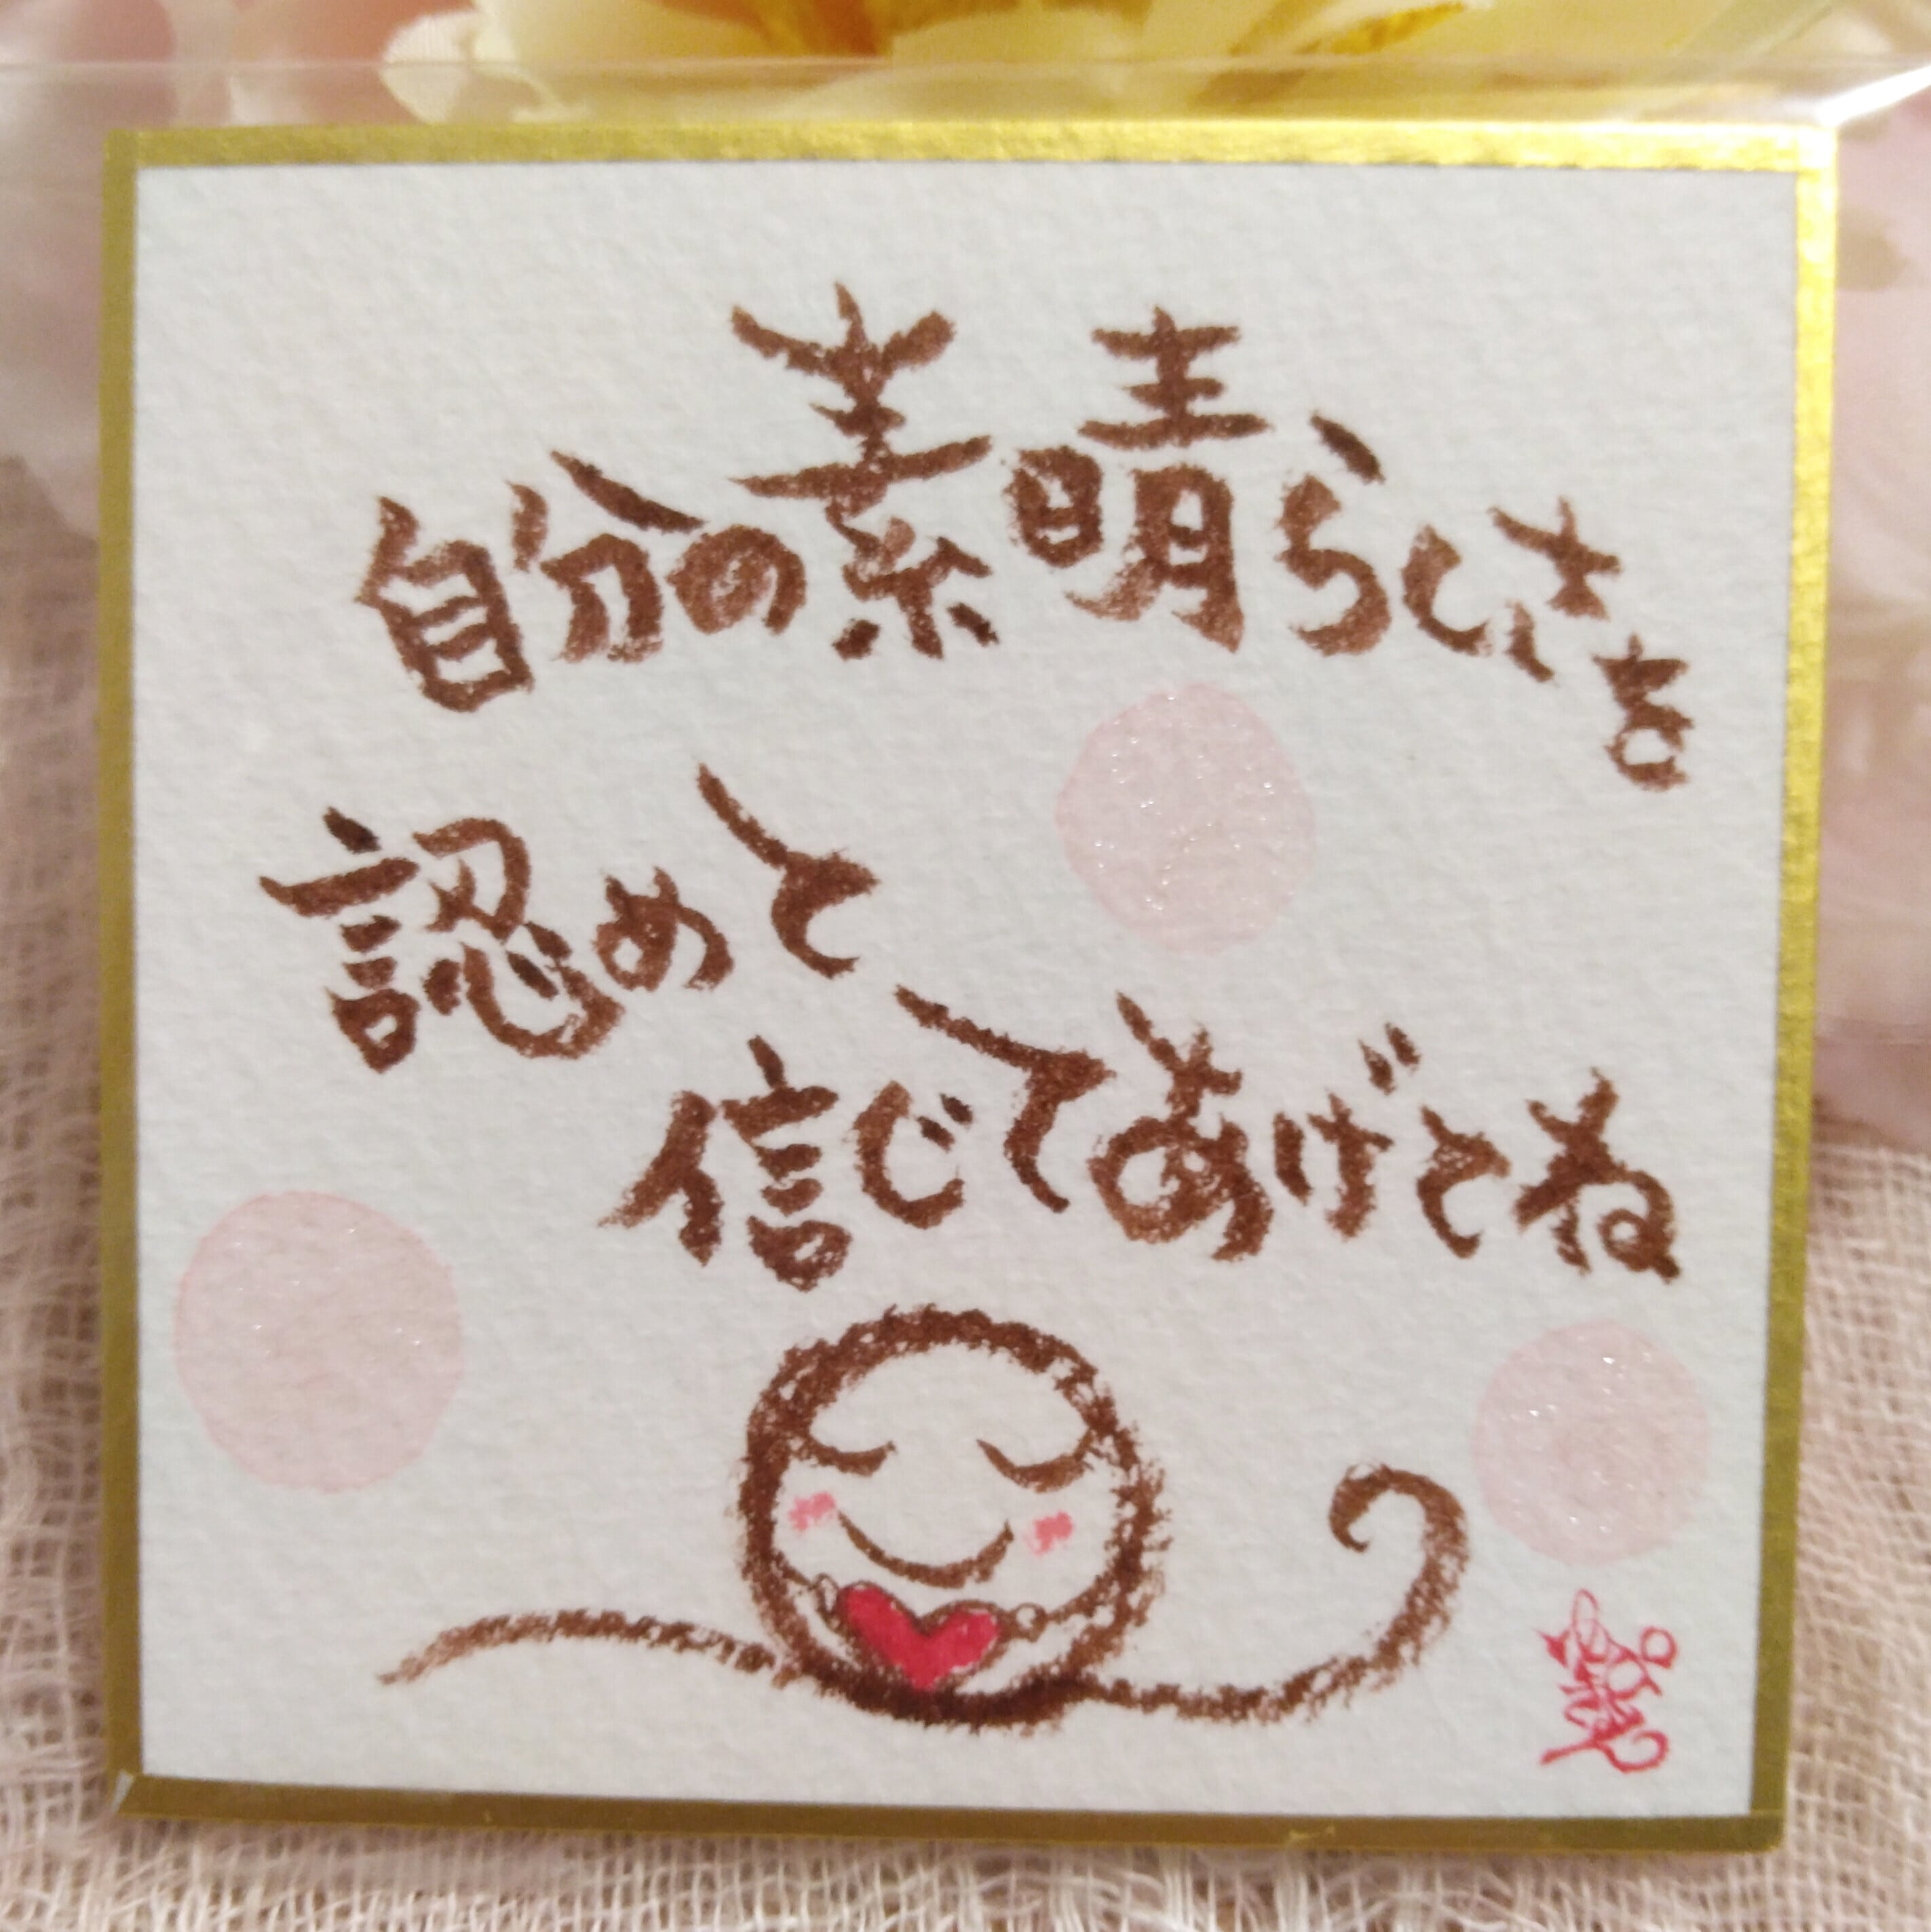 自分の素晴らしさを
認めと
信じてあげとね